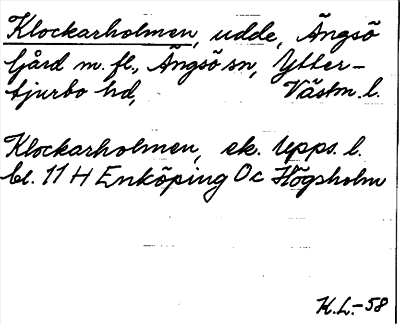 Klockarholmen, udde, Ängsö
gård m. fl., Ängsö sn, Ytter-
tjurbo hd, Västm. l.
Klockarholmen, ek. Upps. l.
bl. 11 H Enköping Oc Högsholm
K.L.-58